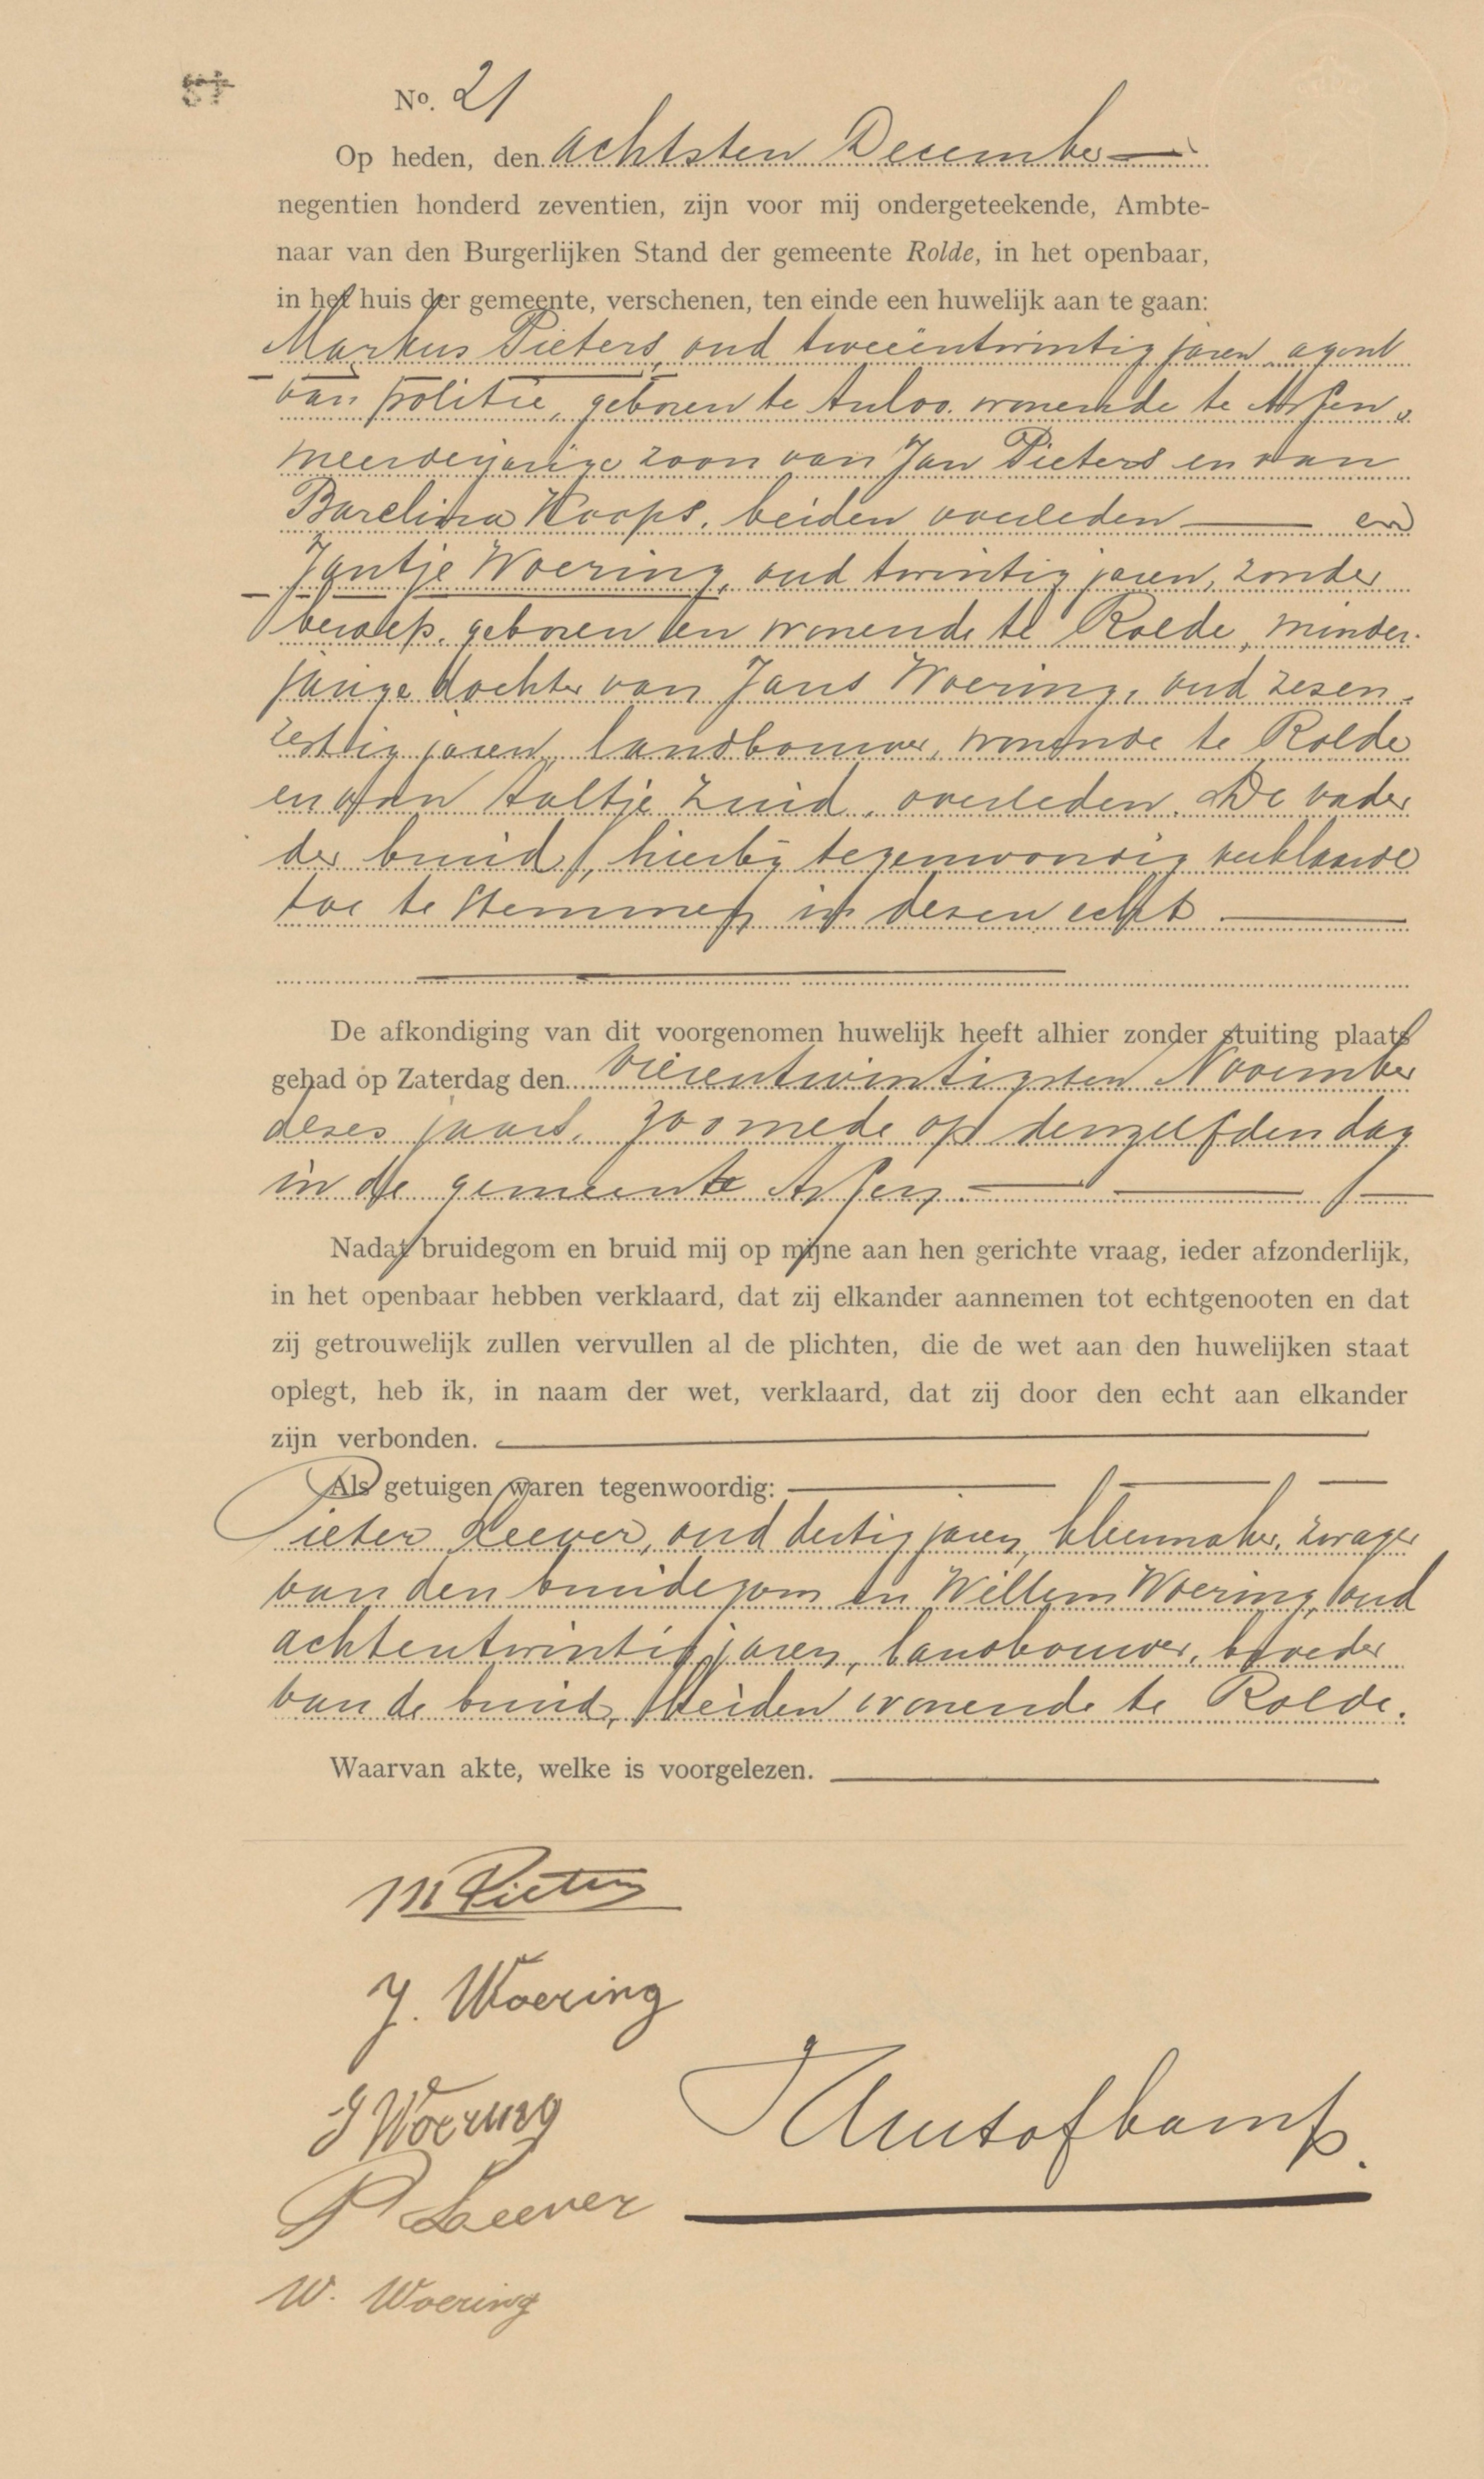 No. 21
Op heden, den achtsten December
negentien honderd zeventien, zijn voor mij ondergeteekende, Ambte-
naar van den Burgerlijken Stand der gemeente Rolde, in het openbaar,
in het huis der gemeente, verschenen, ten einde een huwelijk aan te gaan:
Markus Pieters, oud tweeëntwintig jaren, agent
van politie, geboren te Anloo, wonende te Assen,
meerderjarige zoon van Jan Pieters en van
Barelina Hoops, beiden overleden en
Jantje Woering, oud twintig jaren, zonder
beroep, geboren en wonende te Rolde, minder-
jarige dochter van Jans Woering, oud zesen-
zestig jaren, landbouwer, wonende te Rolde
en van Aaltje Zuid, overleden. De vader
der bruid, hierbij tegenwoordig verklaarde
toe te stemmen in dezen echt.
De afkondiging van dit voorgenomen huwelijk heeft alhier zonder stuiting plaats
gehad op Zaterdag den vierentwintigsten November
dezes jaars, zoomede op denzelfden dag
in de gemeente Assen.
Nadat bruidegom en bruid mij op mijne aan hen gerichte vraag, ieder afzonderlijk,
in het openbaar hebben verklaard, dat zij elkander aannemen tot echtgenooten en dat
zij getrouwelijk zullen vervullen al de plichten, die de wet aan den huwelijken staat
oplegt, heb ik, in naam der wet, verklaard, dat zij door den echt aan elkander
zijn verbonden.
Als getuigen waren tegenwoordig:
Pieter Leever, oud dertig jaren, kleermaker, zwager
van den bruidegom en Willem Woering, oud
achtentwintig jaren, landbouwer, broeder
van de bruid, beiden wonende te Rolde.
Waarvan akte, welke is voorgelezen.
M Pieters
J. Woering
J Woering
P Leever
W. Woering